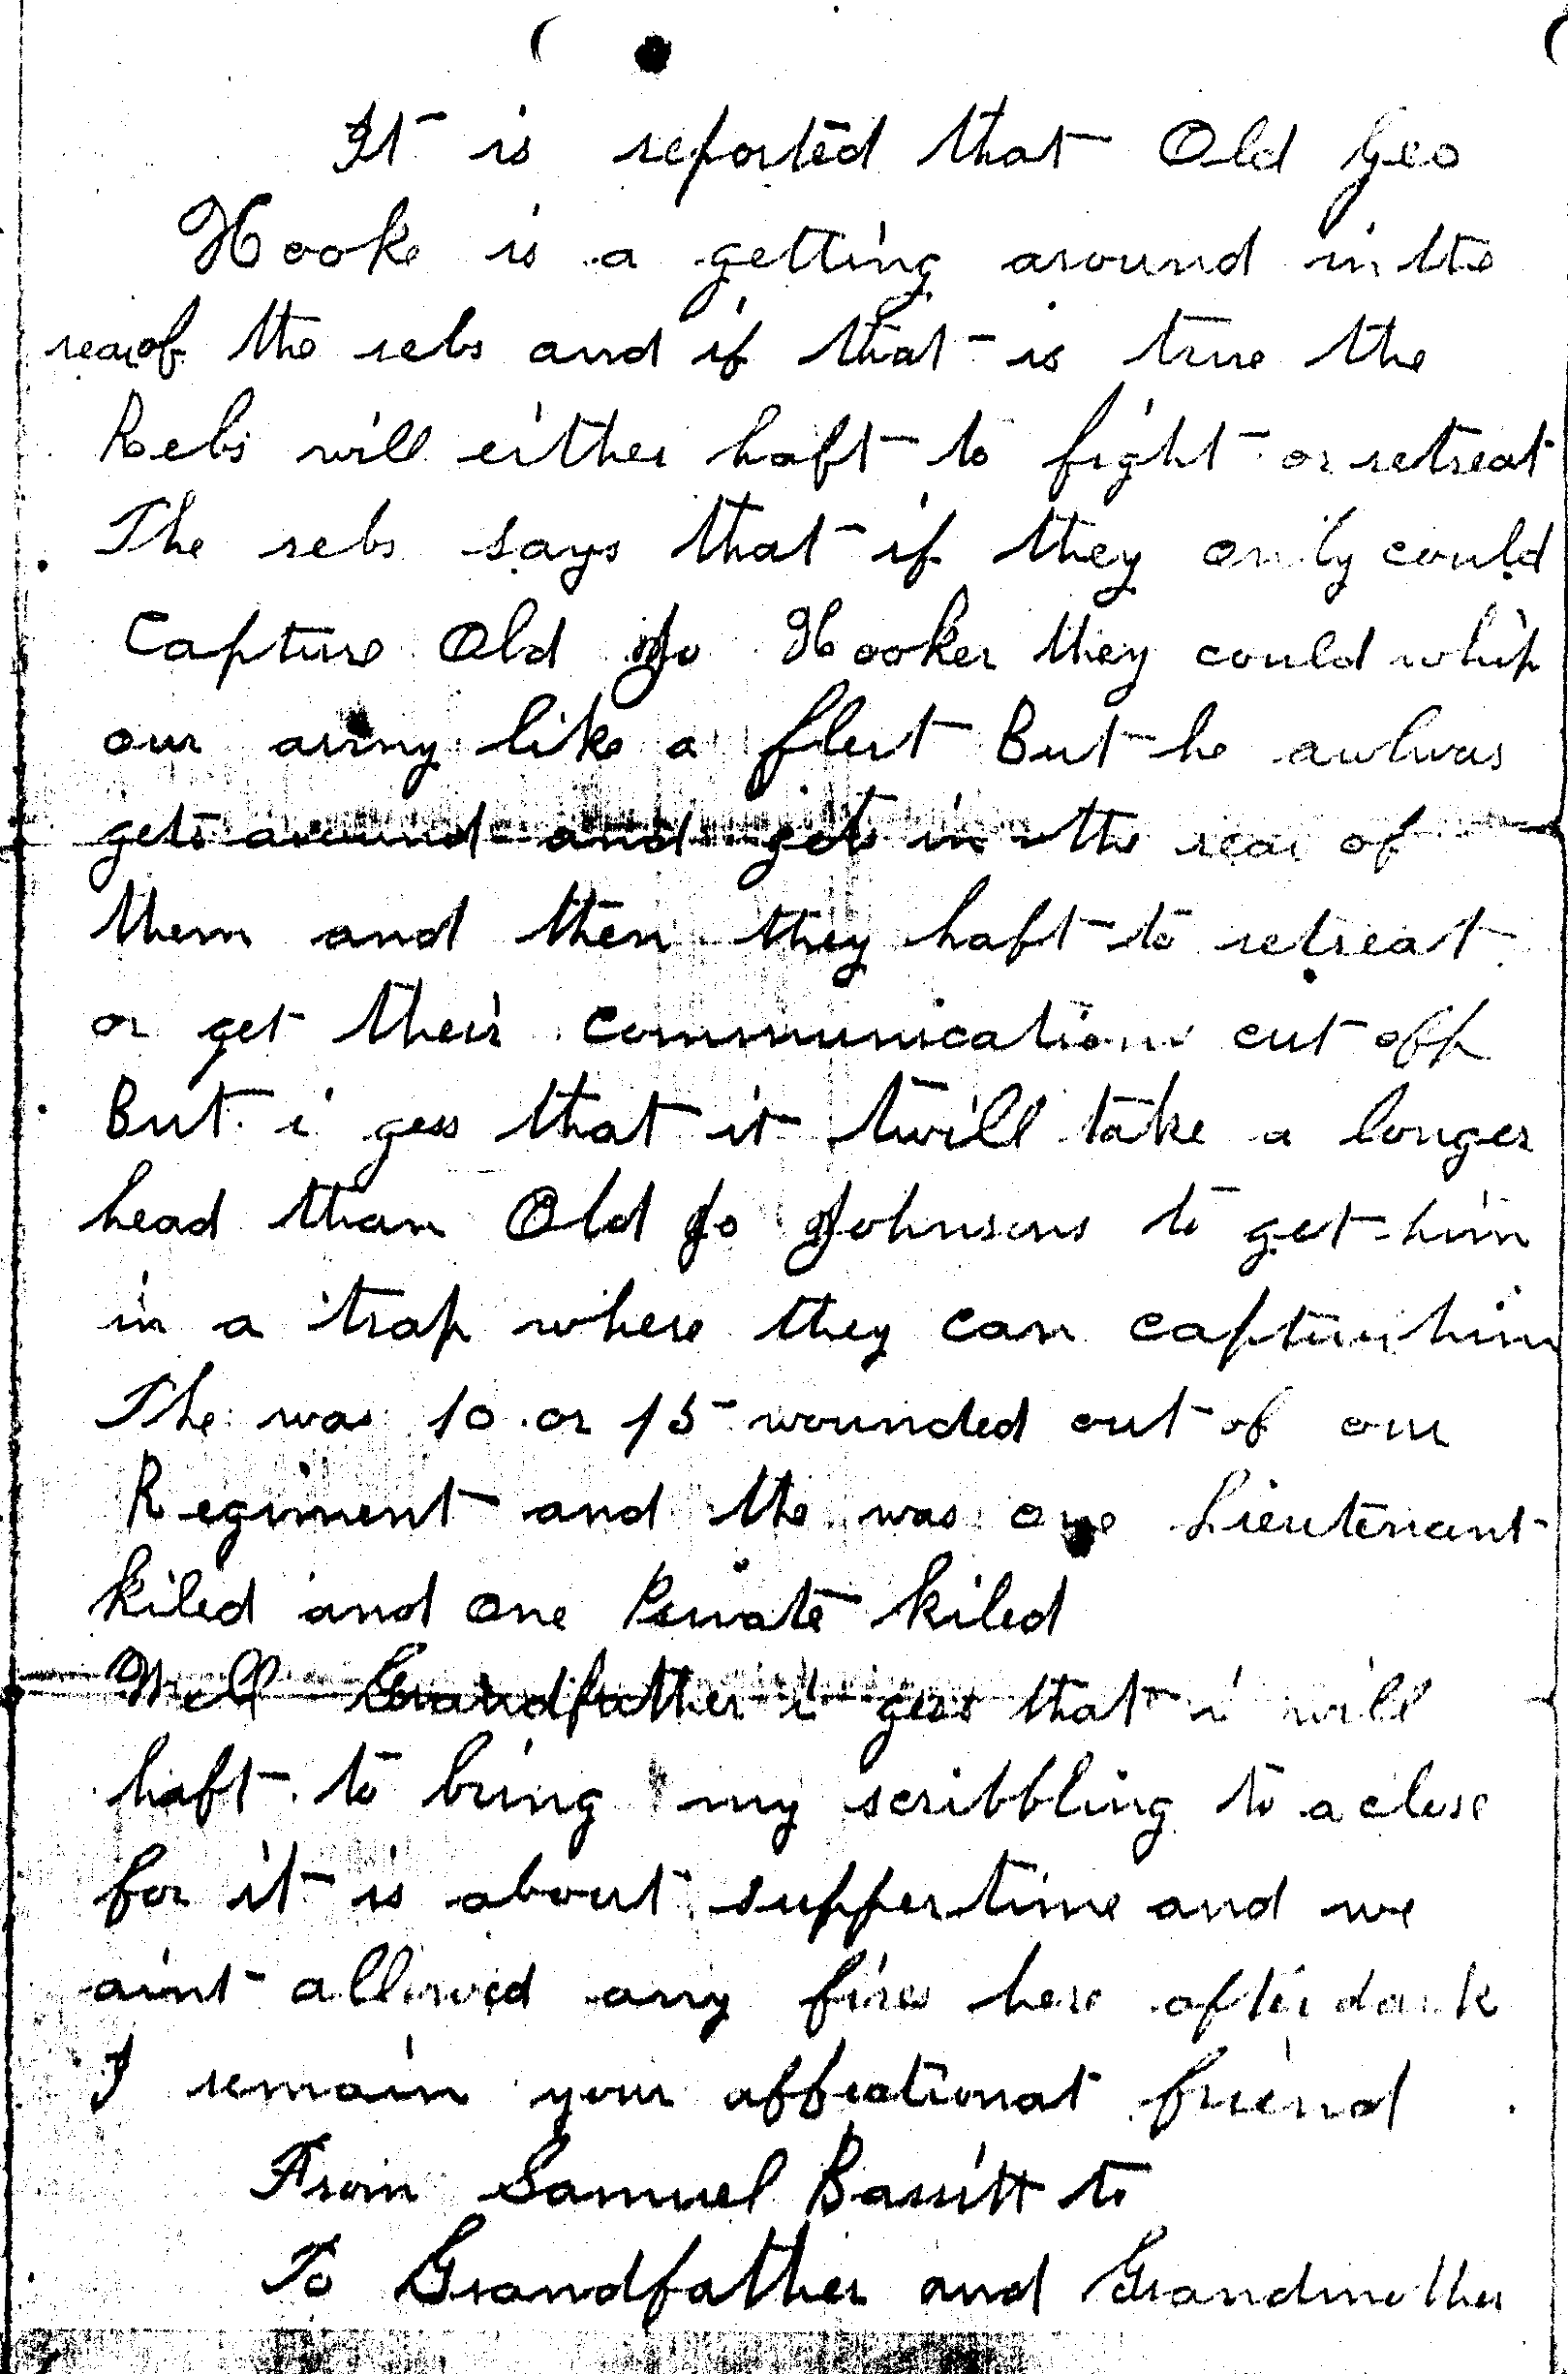 It is reported that Old Geo
Hooke is a getting around in the
rear of the rebs and if that is true the
Rebs will either haft to fight or retreat
The rebs says that if they only could
Capture Old Jo Hooker they could whip
our army like a flert But he awlwas
gets around and gets in the rear of
them and then they haft to retreat
or get their communications cut off
But i gess that it twill take a longer
head than Old Jo Johnsons to get him
in a trap where they can capture him
The was 10 or 15 wounded out of our
Regiment and the was one Lieutenant
kiled and one Privati kiled
Well Grandfather i gess that i will
haft to bring my scribbling to a close
for it is about supper time and we
aint allowed any fires here after dark
I remain your affeationat friend
From Samuel Bassitt to
To Grandfather and Grandmother